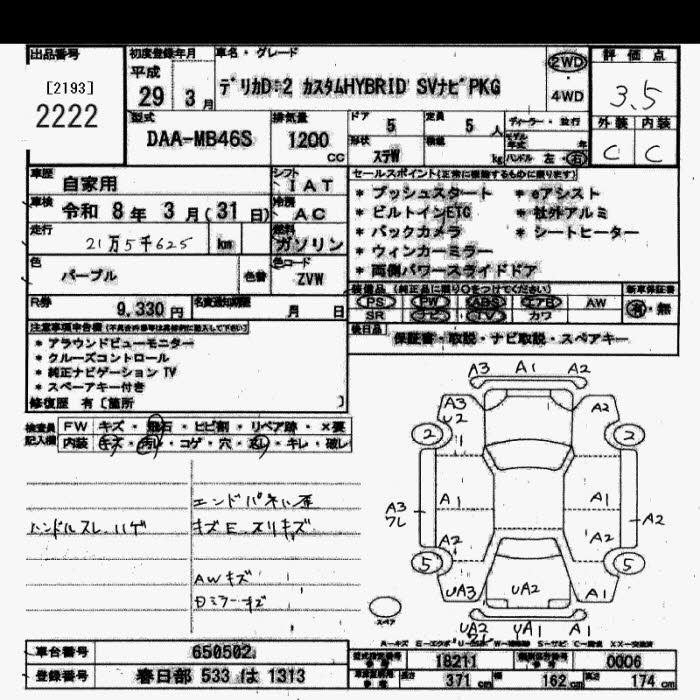 出品番号
[2193]
2222
初度登録年月
平成
29 3月
車名・グレード
デリカD:2 カスタムHYBRID SVナビPKG
2WD
4WD
評価点
3.5
外装 内装
C C
型式
DAA-MB46S
排気量
1200
CC
ドア
5
定員
5 人
形状
ステW
積載
kg
ディーラー・並行
モデル年式 年
ハンドル 左・右
車歴
自家用
シフト
IAT
車検
令和 8年 3月(31日)
冷房
AC
走行
21万5千625 km
燃料
ガソリン
色
パープル
色替
色コード
ZVW
R券
9,330円
名変通知期限
月 日
セールスポイント(正常に稼働するものに限ります)
* プッシュスタート * eアシスト
* ビルトインETC * 社外アルミ
* バックカメラ * シートヒーター
* ウィンカーミラー
* 両側パワースライドドア
装備品(純正品に限り○をつけてください)
新車保証書
PS PW ABS エアB AW
有・無
SR ナビ TV カワ
後日品
保証書・取説・ナビ取説・スペアキー
注意事項申告欄
* アラウンドビューモニター
* クルーズコントロール
* 純正ナビゲーション TV
* スペアキー付き
修復歴 有 [箇所 ]
検査員記入欄
FW キズ・飛石・ヒビ割・リペア跡・×要
内装 キズ・汚レ・コゲ・穴・ ・キレ・破レ
ハンドルスレ.ハゲ
キズE.スリキズ
AWキズ
A3 A1 A2
A3 A2
U2
2 2
1 1
A1 A1
A3 A2
フレ
A2 A2
5 5
UA3 UA2 A1
UA2 YA1 A1
スペア
車台番号
650502
登録番号
春日部 533 は 1313
型式指定番号
18211
類別区分番号
0006
長さ 371 cm 幅 162 cm 高さ 174 cm